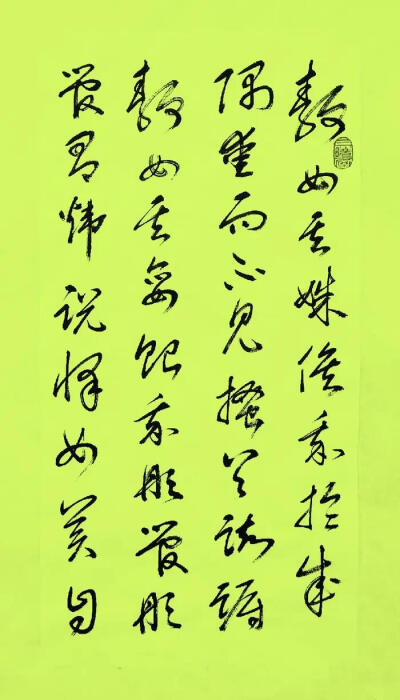 静女其姝俟我於城
隅爱而不见搔首踟蹰
静女其娈贻我彤管彤
管有炜说怿女美自